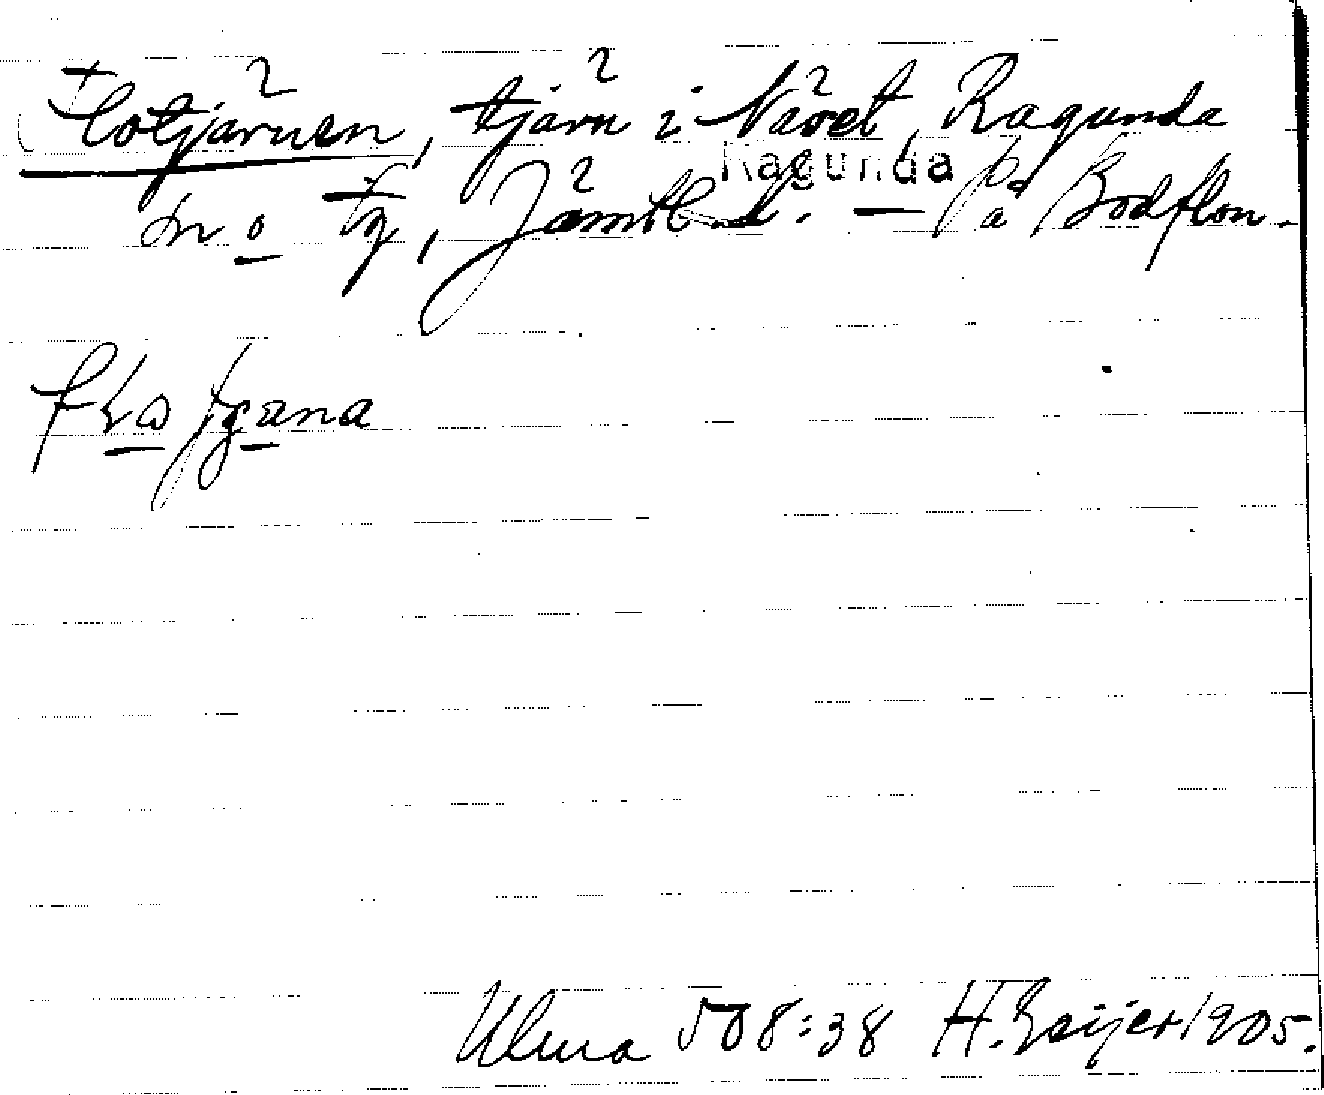 Flotjärnen, tjärn i Nävet, Ragunda
Ragunda
sn o tg, Jämtland. — på Bodflon.
Ulma 508:38 H. Geijer 1905.